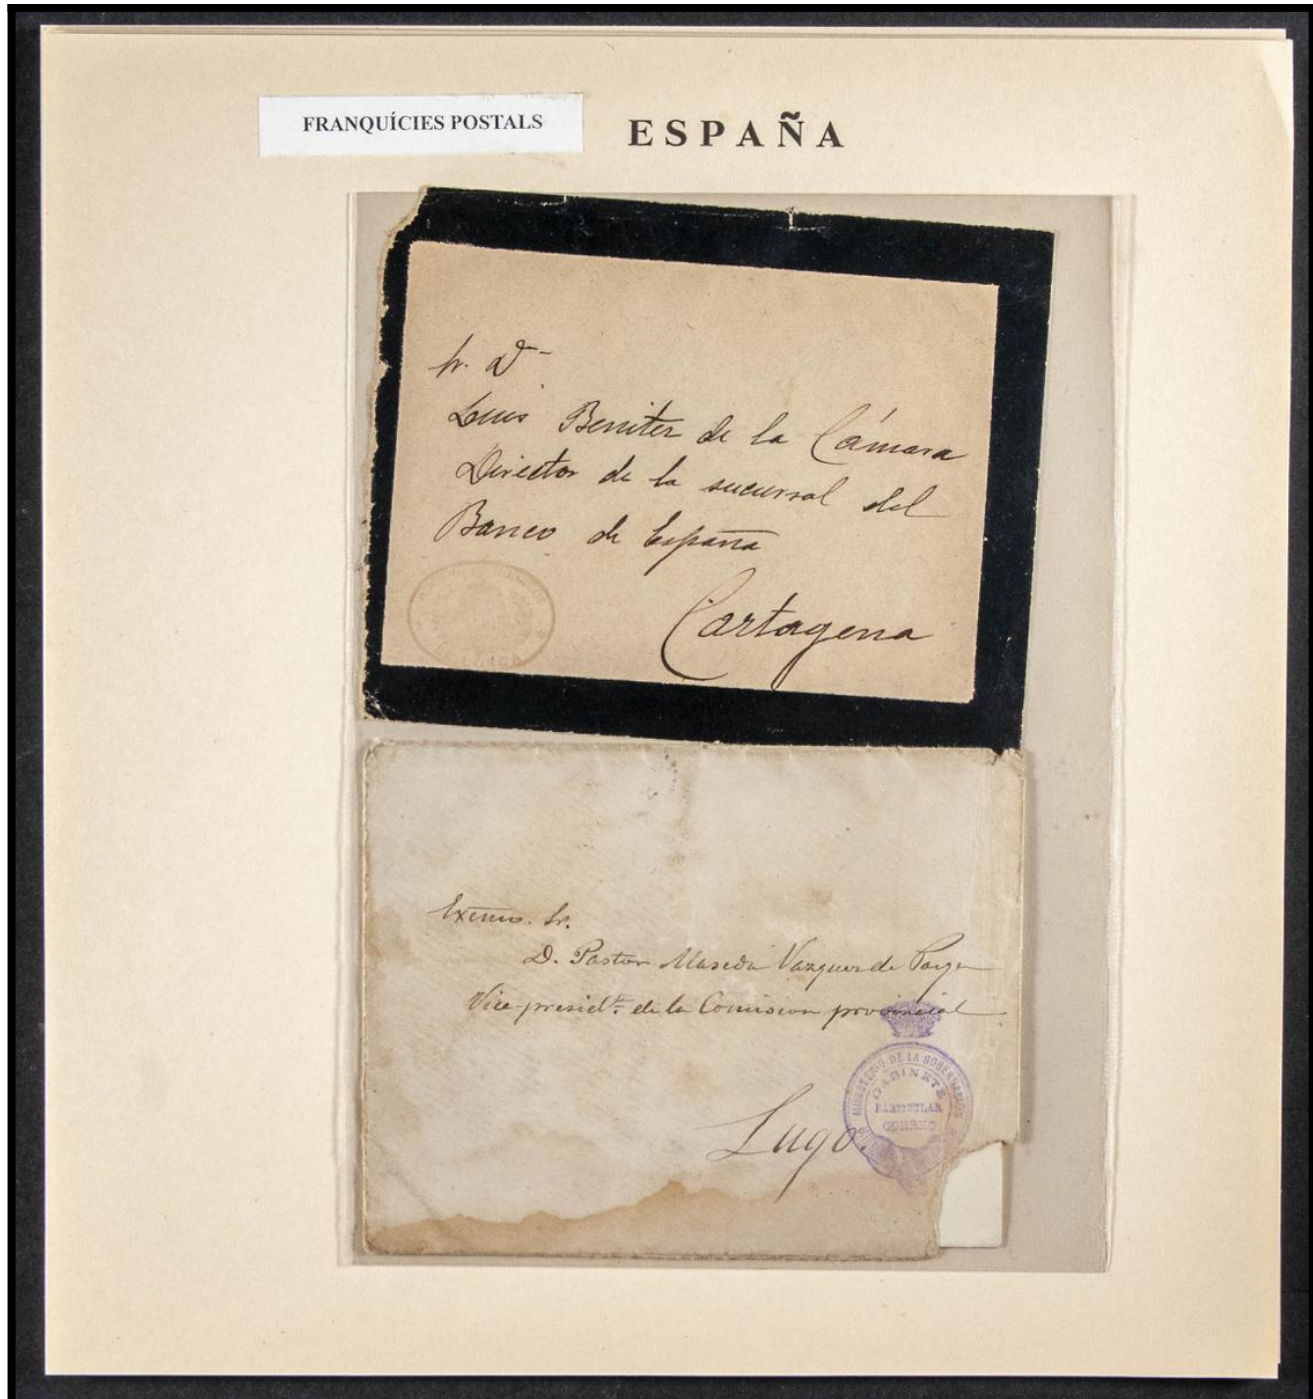 FRANQUÍCIES POSTALS
ESPAÑA
Sr. D
Luis Benitez de la Cámara
Director de la sucursal del
Banco de España
Cartagena
Exmo. Sr.
D. Pastor Maseda Vazquez de Parga
Vice-presidte de la Comision provincial
Lugo
MINISTERIO DE LA GOBERNACION
GABINETE
PARTICULAR
CORREO